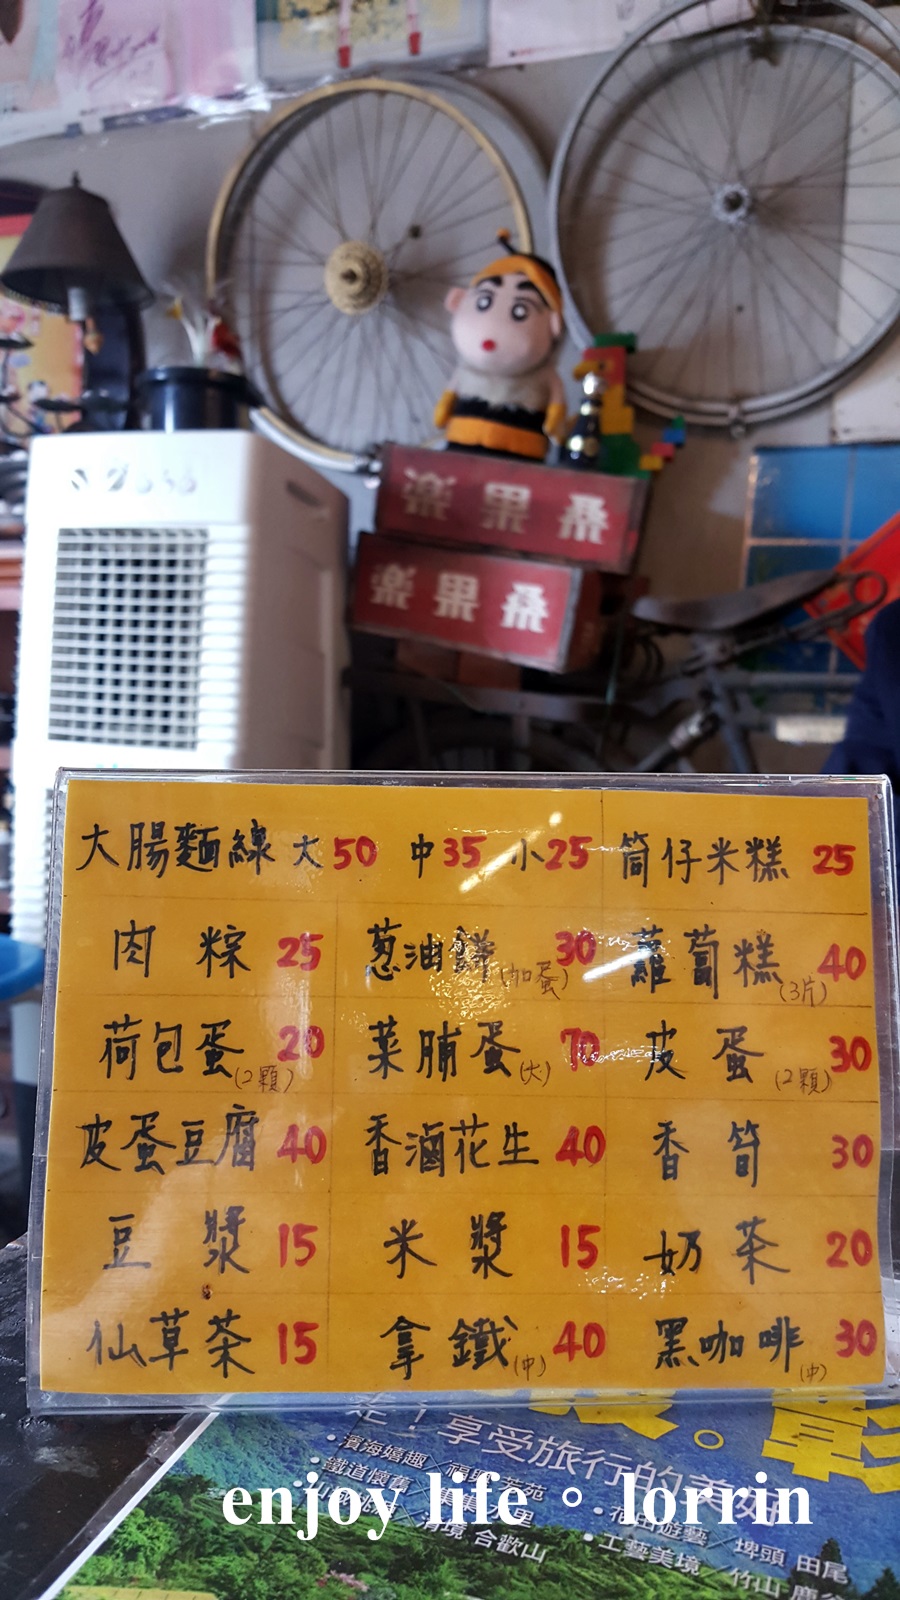 桑果楽
桑果楽
大腸麵線 大50 中35 小25 筒仔米糕 25
肉粽 25 蔥油餅(加蛋) 30 蘿蔔糕(3片) 40
荷包蛋(2顆) 20 菜脯蛋(大) 70 皮蛋(2顆) 30
皮蛋豆腐 40 香滷花生 40 香筍 30
豆漿 15 米漿 15 奶茶 20
仙草茶 15 拿鐵(中) 40 黑咖啡(中) 30
走！享受旅行的美好
•濱海嬉趣
•鐵道懷舊
清境 合歡山
•花田遊藝／埤頭 田尾
•工藝美境／竹山 鹿谷
enjoy life。lorrin